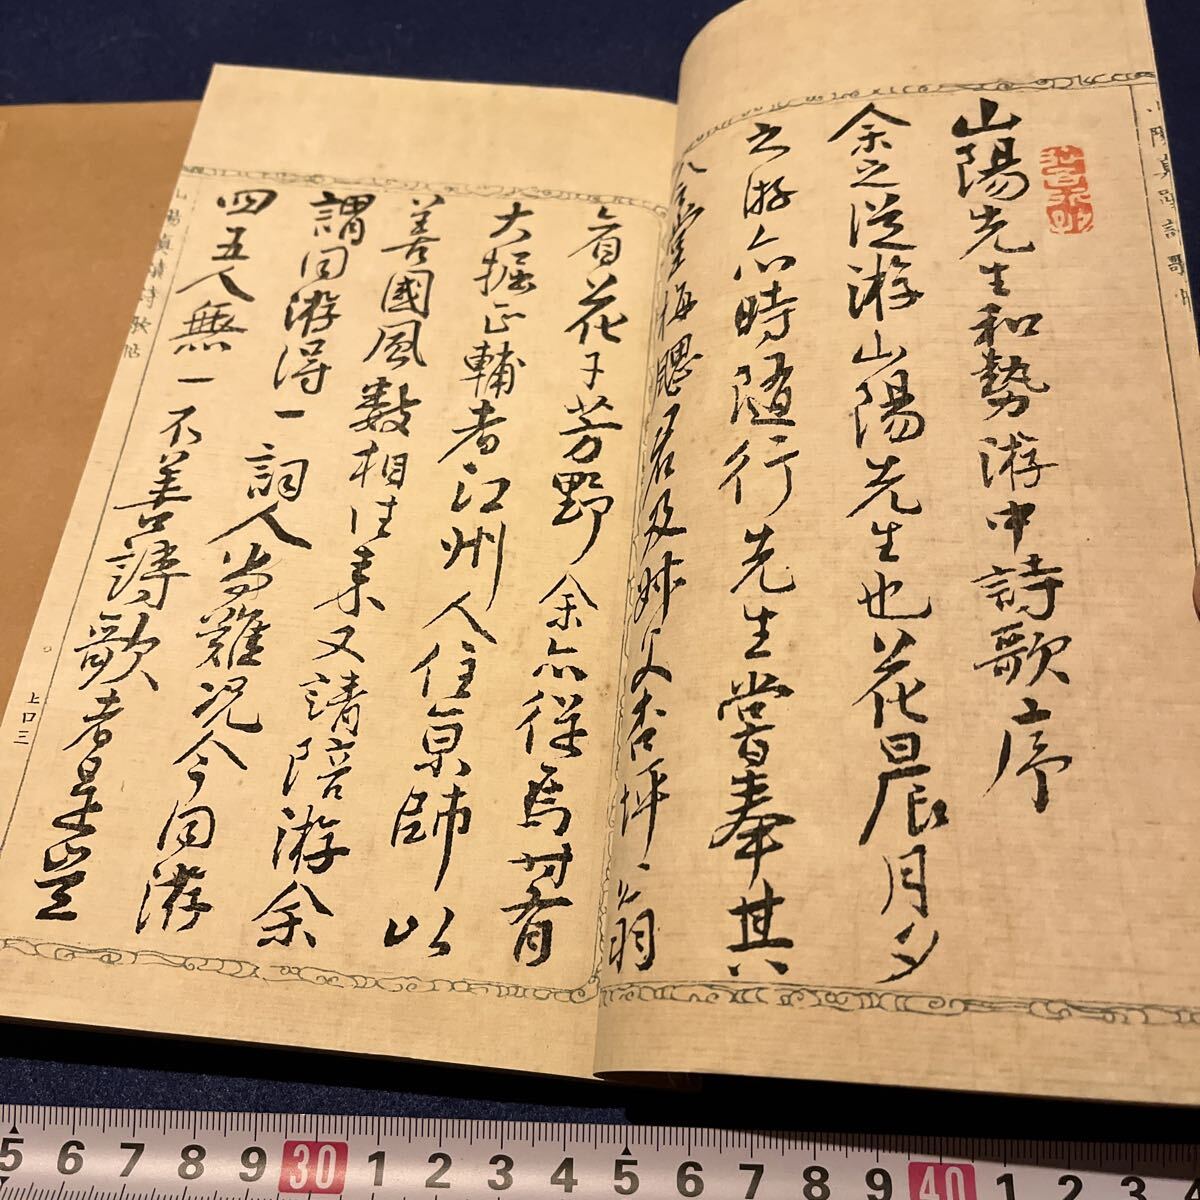 山陽先生和勢游中詩歌序
余之從游山陽先生也花晨月夕
之游亦時随行先生嘗奉其
堂梅颸君及叔父杏坪翁
看花于芳野余亦從焉時有
大堀正輔者江州人住京師以
善國風數相往来又請陪游余
謂同游得一詞人尚難况今同游
四五人無一不善詩歌者是豈
山陽真蹟詩歌帖
上口三
5 6 7 8 9 30 1 2 3 4 5 6 7 8 9 40 1 2 3 4